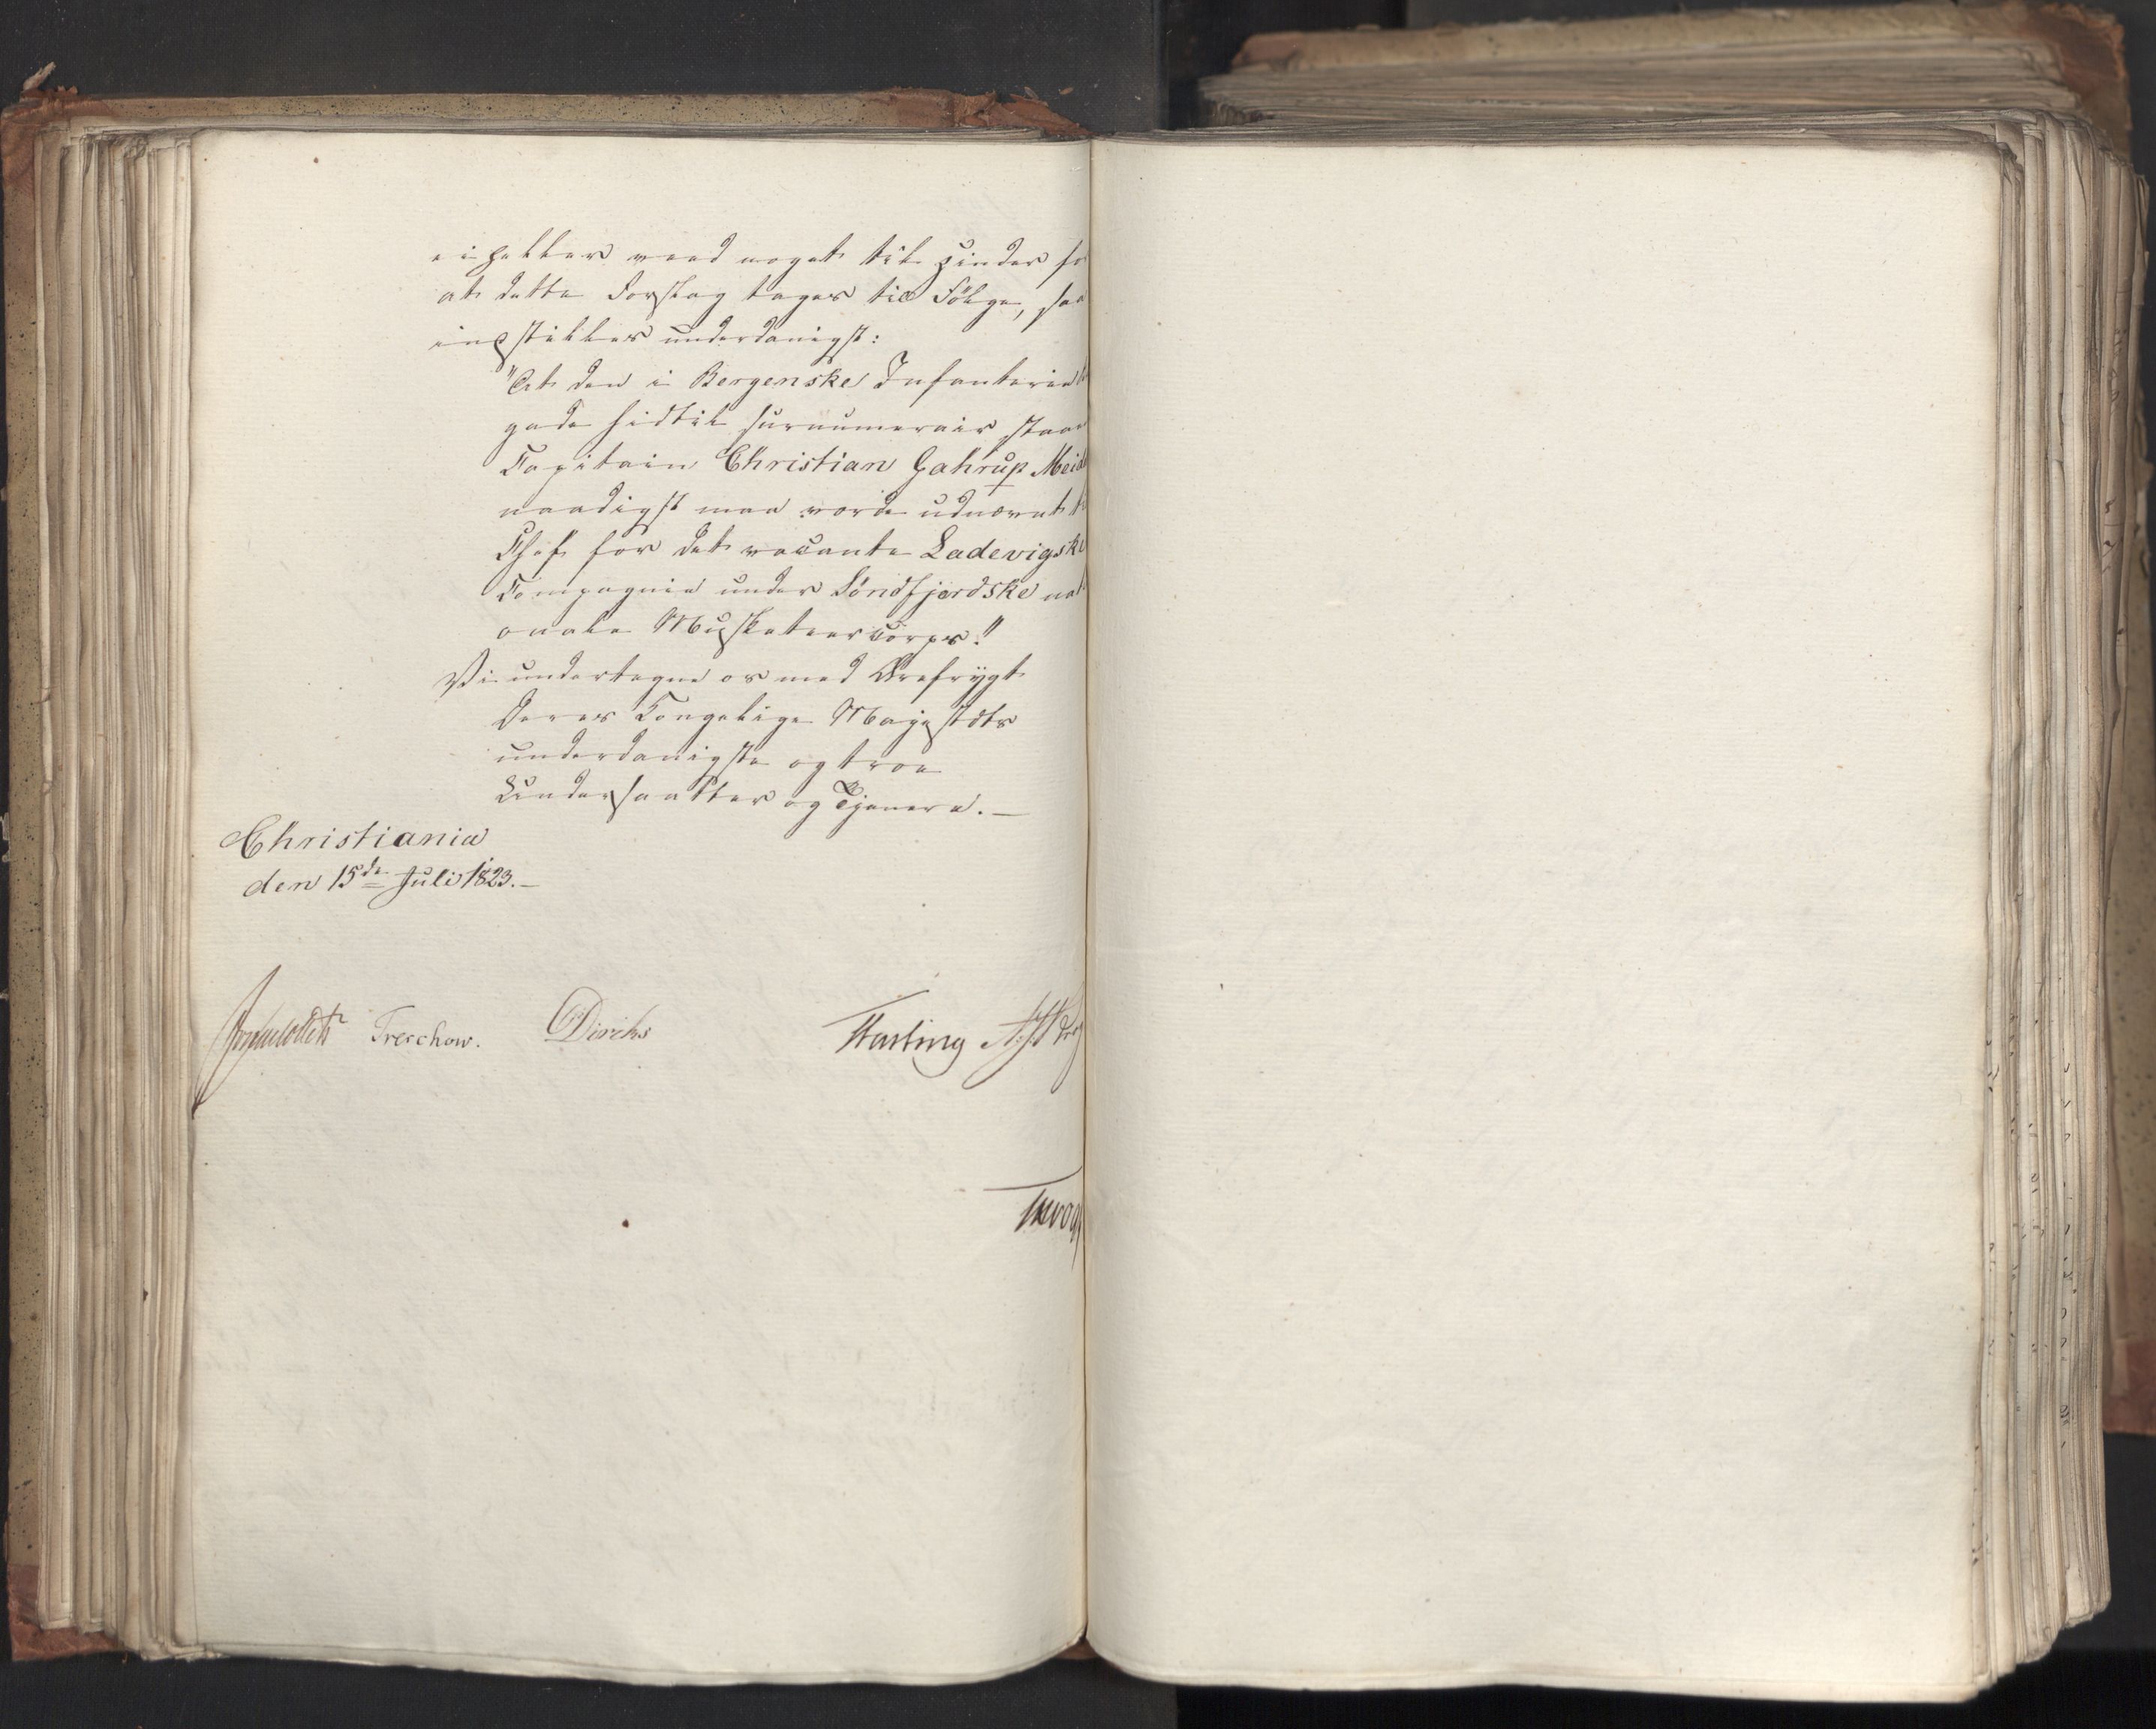 ei heller veed noget til Hinder fo
at dette Forslag tages til Følge, saa
indstilles underdanigst:
"At den i Bergenske Infanterie
gade hidtil surnumerair staae
Capitain Christian Gahrup Meid
naadigst maa vorde udnævnt ti
Chef for det vacante Ladevigske
Compagnie under Søndfjordske nat
onale Musketeercorps."
Vi undertegne os med Ærefrygt
Deres Kongelige Majestæts
underdanigste og troe
Undersaatter og Tjenere.—
Christiania
den 15de Juli 1823.—
Treschow. Diriks Fasting